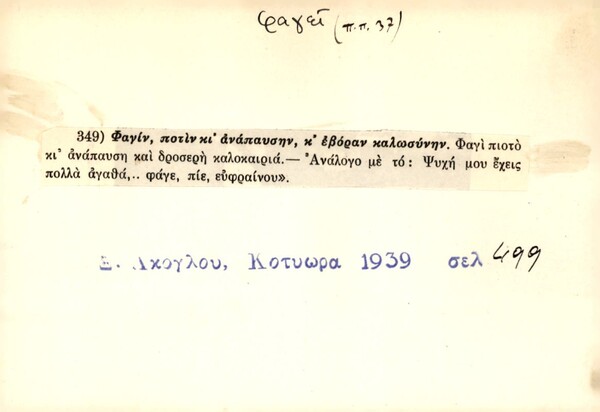 φαγεῖ (π.π. 37)
349) Φαγίν, ποτὶν κι' ἀνάπαυσην, κ' ἐβόραν καλωσύνην. Φαγὶ πιοτὸ
κι' ἀνάπαυση καὶ δροσερὴ καλοκαιριά.— Ἀνάλογο μὲ τό: Ψυχή μου ἔχεις
πολλὰ ἀγαθά,.. φάγε, πίε, εὐφραίνου».
Ξ. Ακογλου, Κοτυωρα 1939 σελ 499